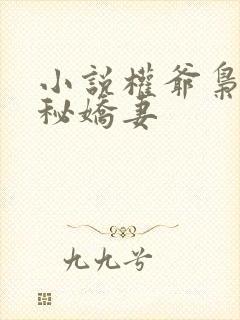 小説權爺梟
秘嬌妻
九九兮